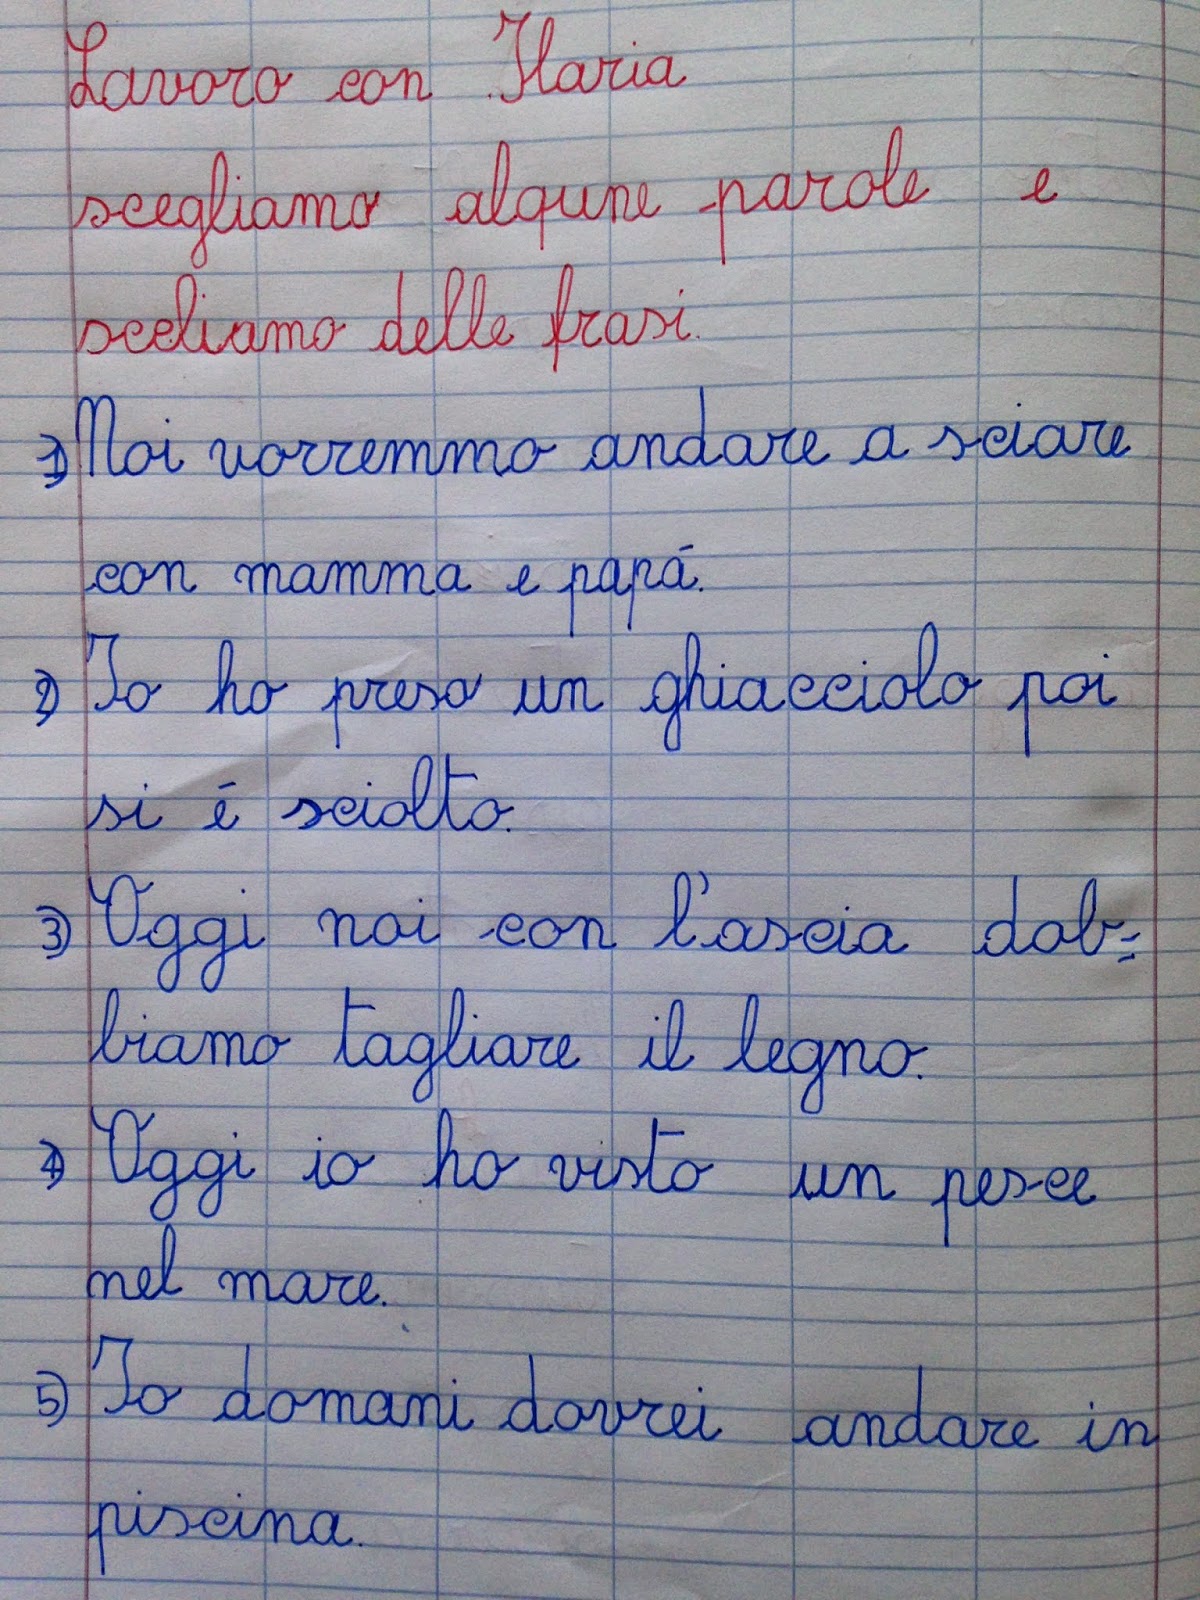 Lavoro con Ilaria
scegliamo algune parole e
sceliamo delle frasi.
1) Noi vorremmo andare a sciare
con mamma e papá.
2) Io ho preso un ghiacciolo poi
si é sciolto.
3) Oggi noi con l'ascia dob=
biamo tagliare il legno.
4) Oggi io ho visto un pesce
nel mare.
5) Io domani dovrei andare in
piscina.